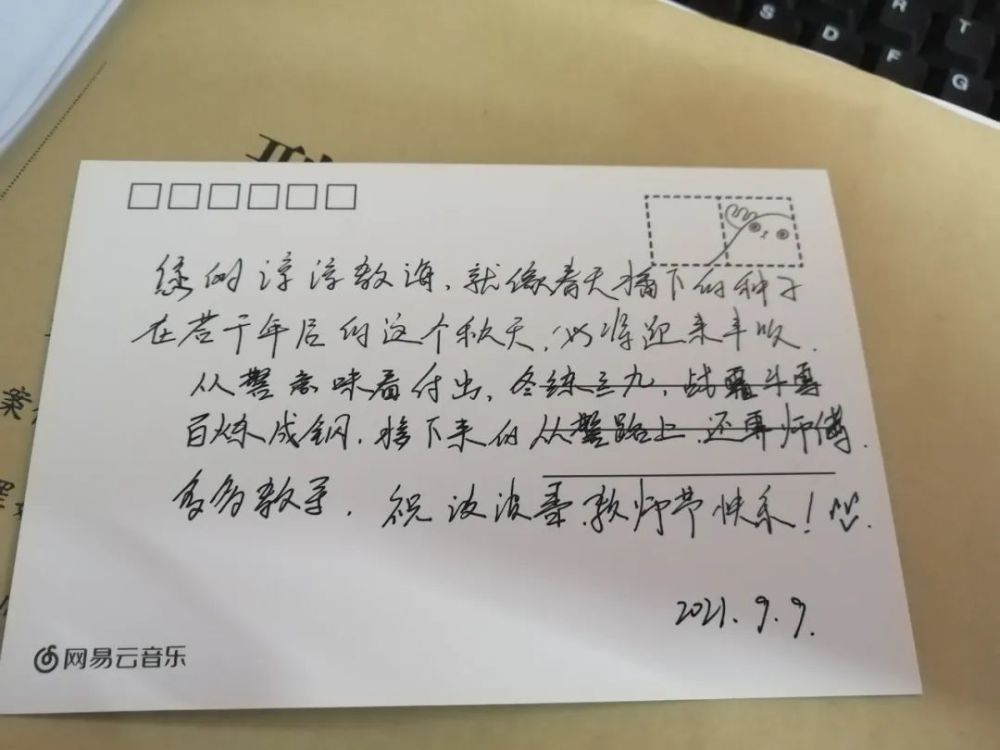 您的谆谆教诲,就像春天播下的种子
在若干年后的这个秋天,必将迎来丰收.
从警意味着付出,冬练三九,战霜斗雪
百炼成钢,接下来的从警路上,还要师傅
多多教导,祝波波哥,教师节快乐!
2021.9.9.
网易云音乐
S
D
F
R
T
G
案